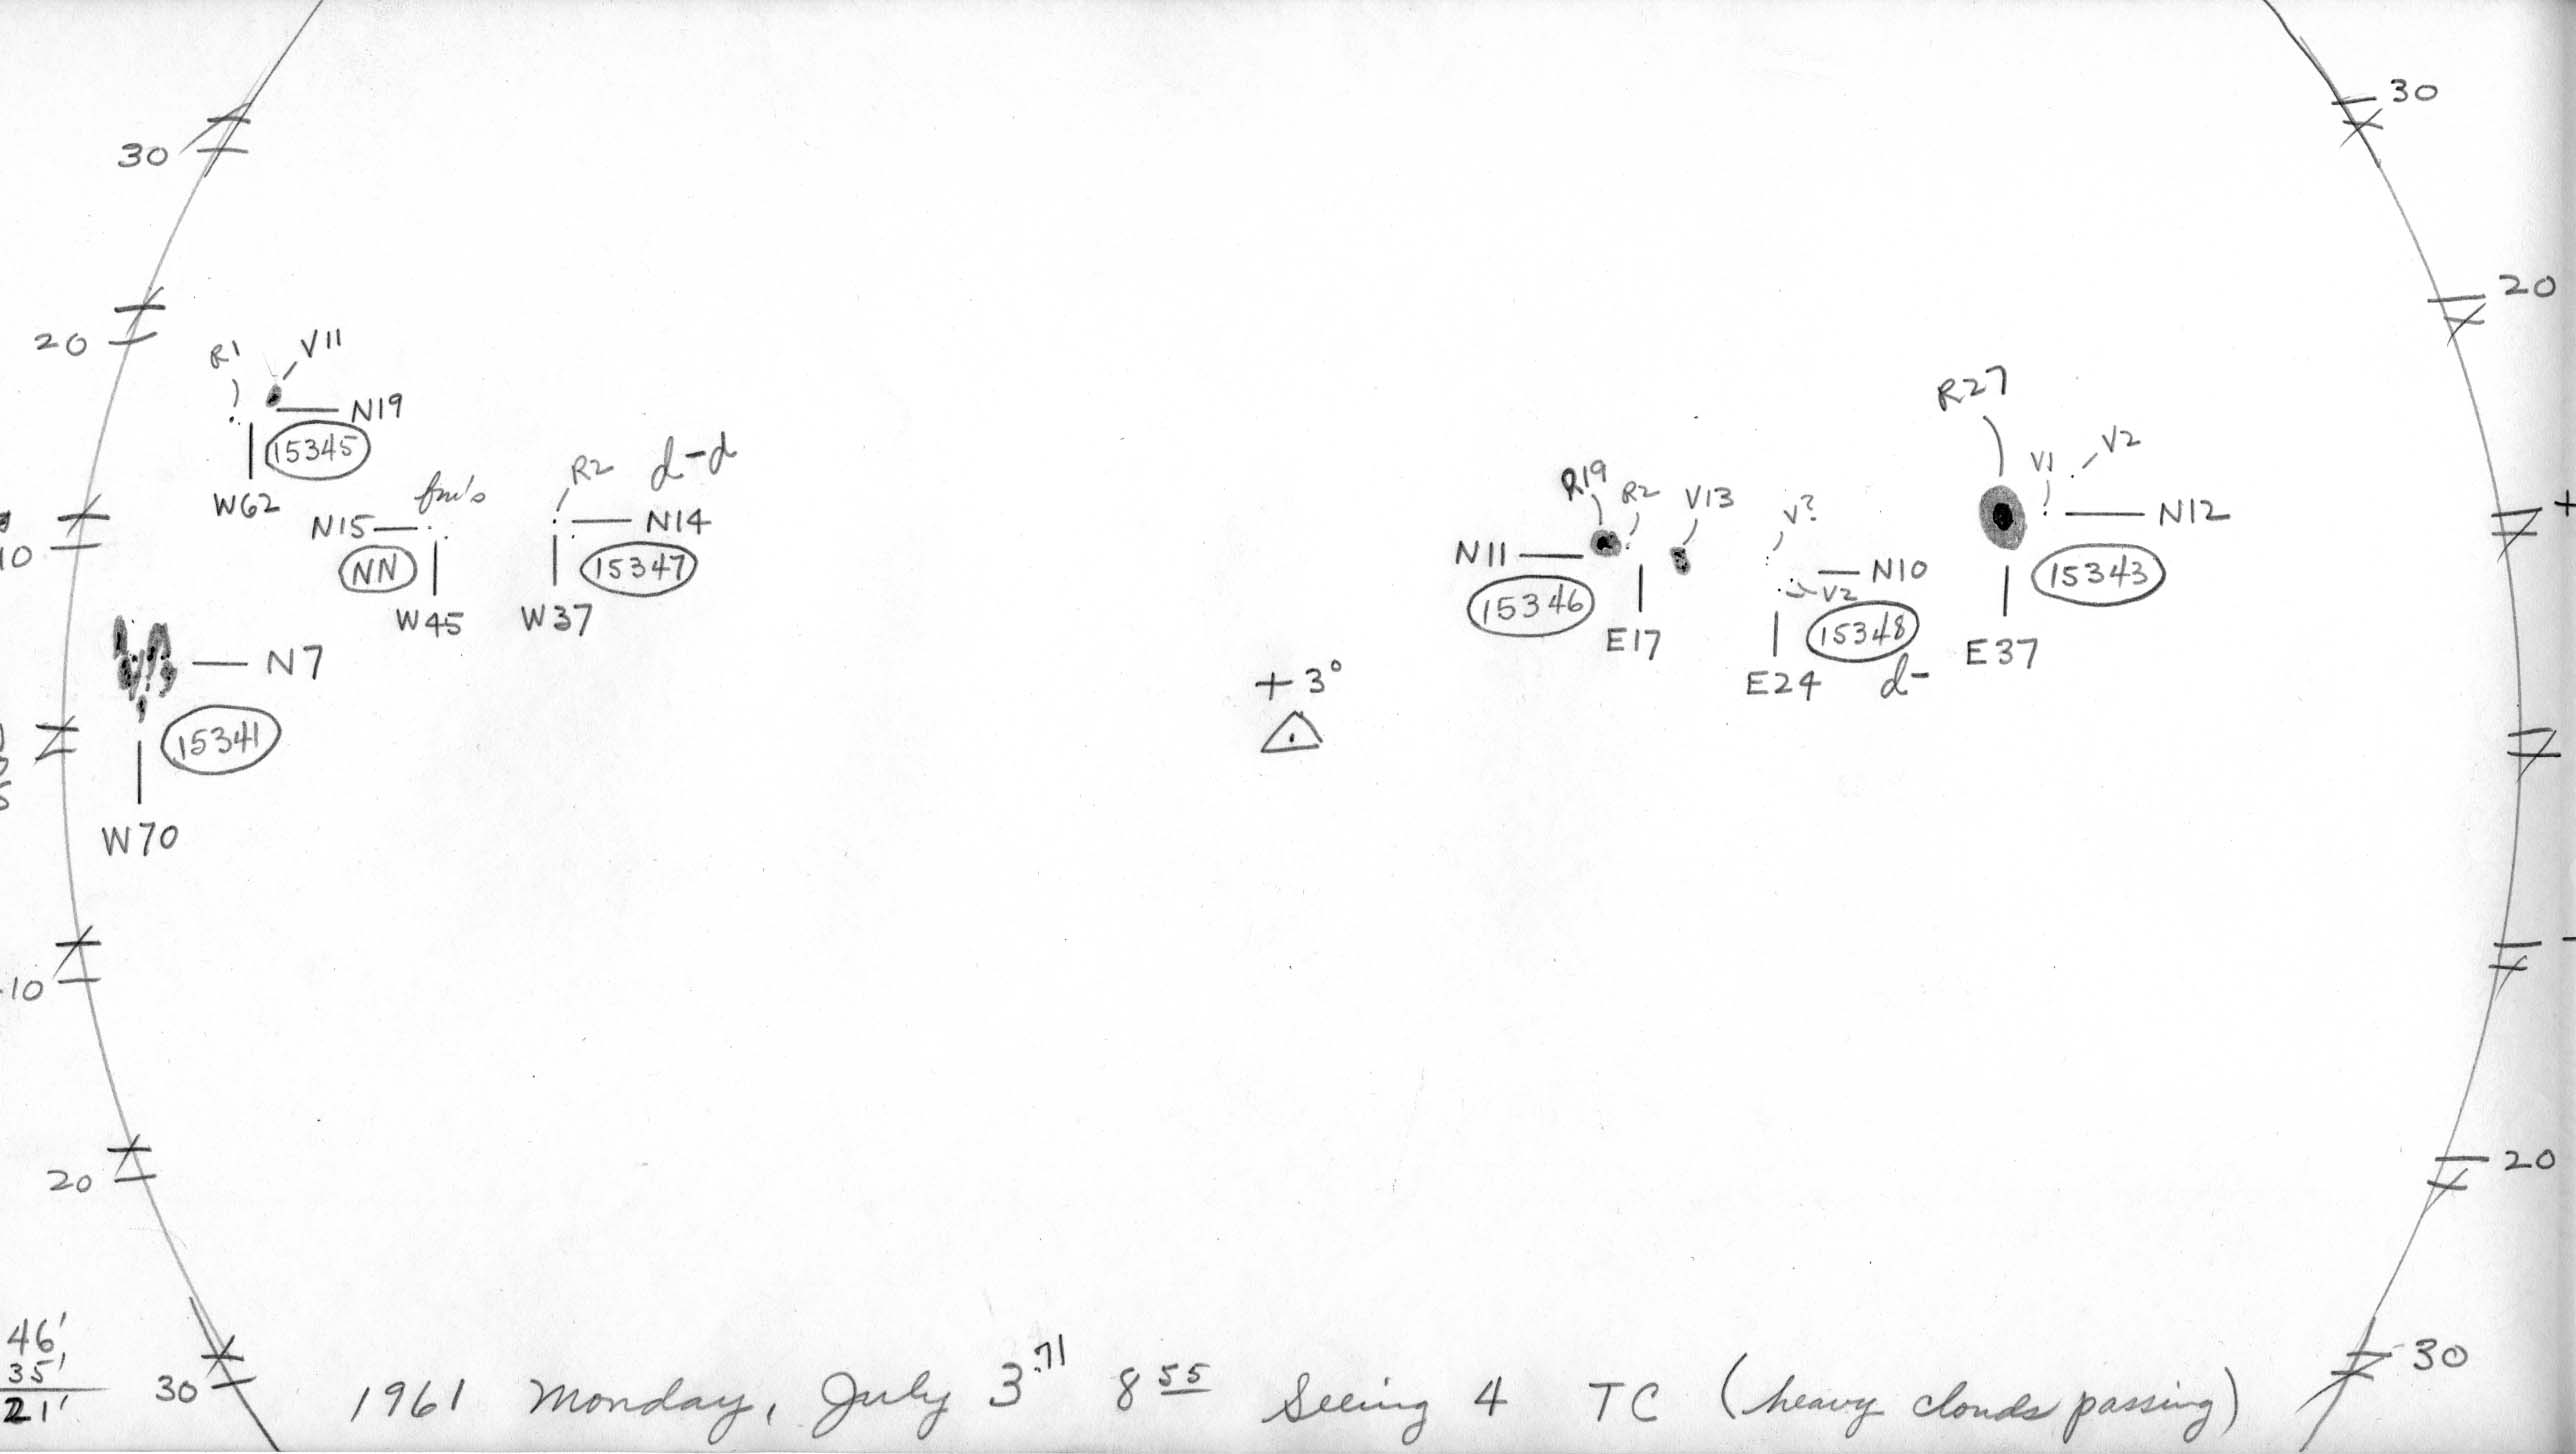 30
30
20
20
R1 V11
N19
15345
W62
fm's
N15
NN
W45
R2 d-d
N14
15347
W37
10
N7
15341
W70
+3°
R19 R2 V13
N11
15346
E17
V?
N10
V2
15348
E24 d-
R27
V1 V2
N12
15343
E37
+
-
10
20
20
46'
35'
21'
30
30
1961 Monday, July 3.71 8 55 Seeing 4 TC (heavy clouds passing)